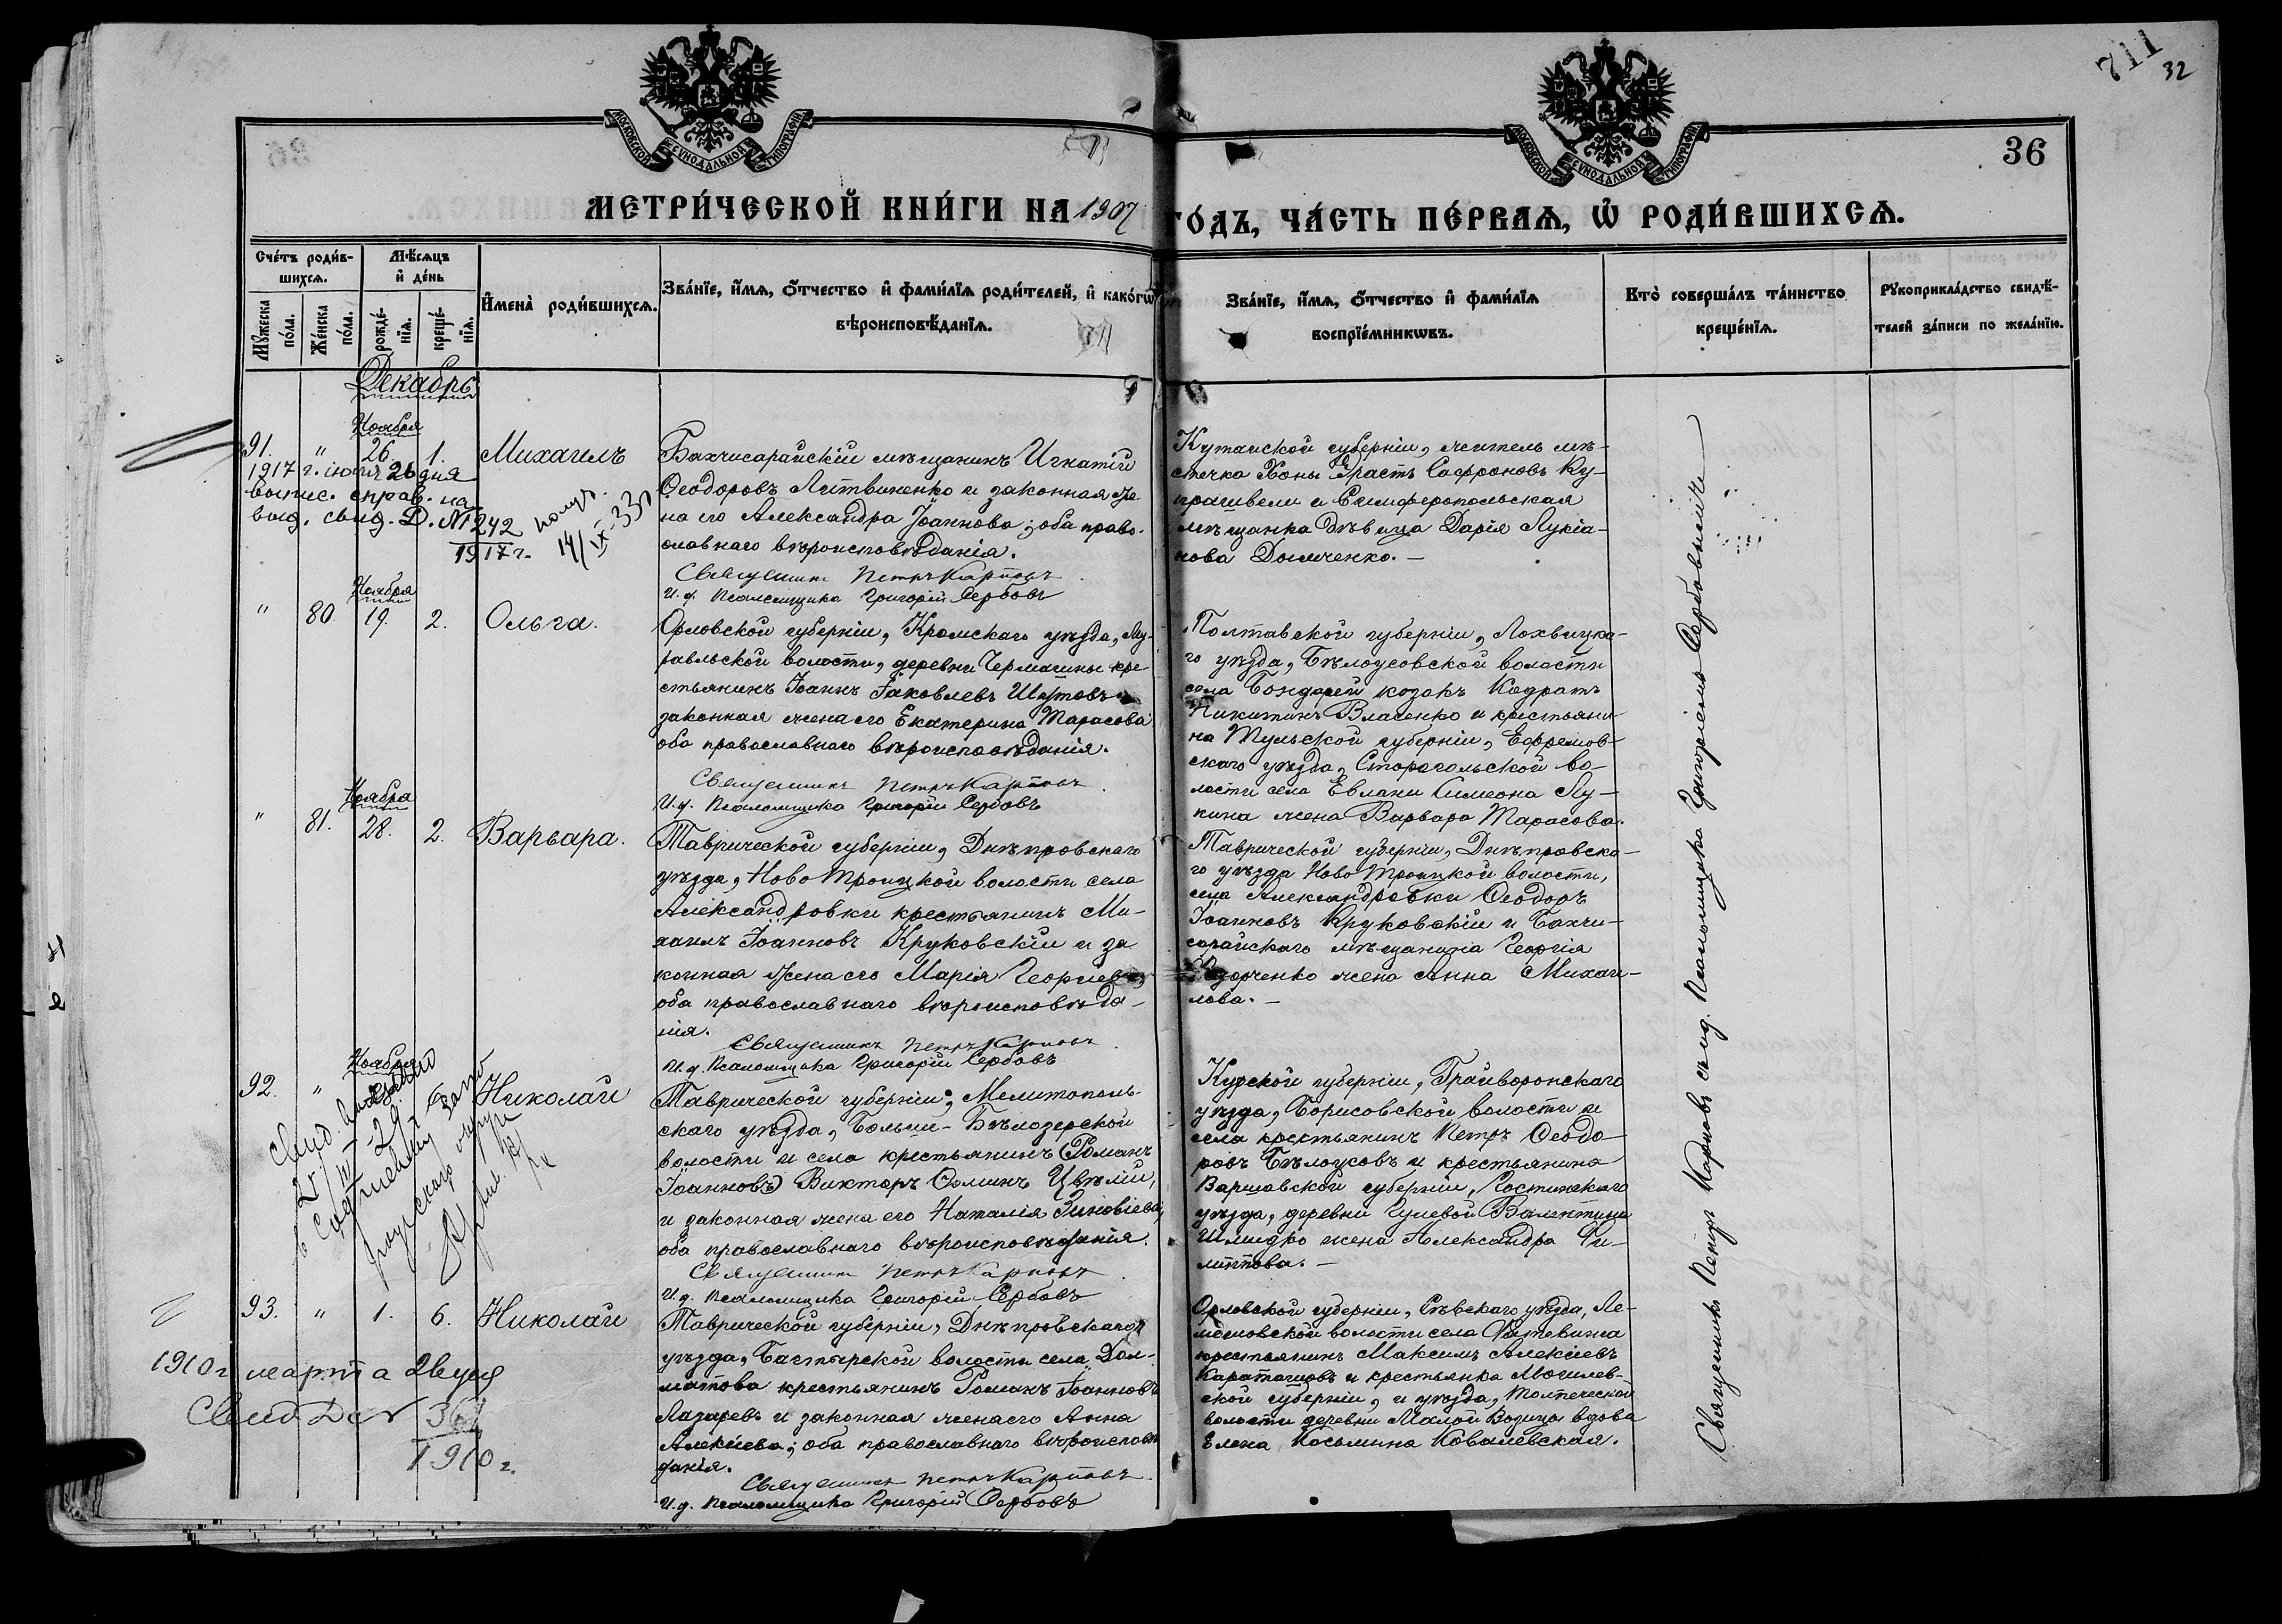 711
32
МОСКОВСКОЙ СѴНОДАЛЬНОЙ ТИПОГРАФІИ
МОСКОВСКОЙ СѴНОДАЛЬНОЙ ТИПОГРАФІИ
36
МЕТРИ́ЧЕСКОЙ КНИ́ГИ НА 1907 ГО́ДЪ, ЧА́СТЬ ПЕ́РВАѦ, Ѡ РОДИ́ВШИХСѦ.
Сче́тъ роди́в-
шихсѧ.
Мꙋ́жеска
по́ла.
Же́нска
по́ла.
Мѣ́сѧцъ
и҆ де́нь
рожде́-
нїѧ.
креще́-
нїѧ.
И҆мена̀ роди́вшихсѧ.
Зва́нїе, и҆́мѧ, ѻ҆́тчество и҆ фами́лїѧ роди́телей, и҆ како́гѡ
вѣроисповѣ́данїѧ.
Зва́нїе, и҆́мѧ, ѻ҆́тчество и҆ фами́лїѧ
воспрїе́мникѡвъ.
Кто̀ соверша́лъ та́инство
креще́нїѧ.
Рꙋкоприкла́дство свидѣ́-
телей за́писи по жела́нїю.
Декабрь
Ноября
91. " 26. 1. Михаилъ
1917 г. іюня 26 дня
выпис. справ. на
выд. свид. Д. № 242
1917 г.
14/IX-33г
Бахчисарайскій мѣщанинъ Игнатій
Ѳеодоровъ Литвиненко и законная же-
на его Александра Іоаннова; оба право-
славнаго вѣроисповѣданія.
Священникъ Петръ Карповъ
И.д. Псаломщика Григорій Сербовъ
Кутаиской губерніи, житель мѣ-
стечка Хоны Ерастъ Софроновъ Ку-
прашвили и Симферопольская
мѣщанка дѣвица Дарія Лукіа-
нова Дымченко.—
Ноября
" 80. 19. 2. Ольга.
Орловской губерніи, Кромскаго уѣзда,
волости, деревни Чермашны кре-
стьянинъ Іоаннъ Іаковлевъ Шутовъ и
законная жена его Екатерина Тарасова
оба православнаго вѣроисповѣданія.
Священникъ Петръ Карповъ
И.д. Псаломщика Григорій Сербовъ
Полтавской губерніи, Лохвицка-
го уѣзда, Бѣлоусовской волости
села Бондарей козакъ Кодратъ
Никитинъ Власенко и крестьяни-
на Тульской губерніи, Ефремов-
скаго уѣзда, Старогольской во-
лости села Евлани Симеона Лу-
кина жена Варвара Тарасова.
Ноября
" 81. 28. 2. Варвара.
Таврической губерніи, Днѣпровскаго
уѣзда, Ново Троицкой волости села
Александровки крестьянинъ Ми-
хаилъ Іоанновъ Круковскій и за
конная жена его Марія Георгіева,
оба православнаго вѣроисповѣда-
нія.
Священникъ Петръ Карповъ
И.д. Псаломщика Григорій Сербовъ
Таврической губерніи, Днѣпровска-
го уѣзда Ново Троицкой волости,
села Александровки Ѳеодоръ
Іоанновъ Круковскій и Бахчи-
сарайскаго мѣщанина Георгія
жена Анна Михаи-
лова.—
Ноября
92. " 6. Николай
Таврической губерніи, Мелитополь-
скаго уѣзда, Больше-Бѣлозерской
волости и села крестьянинъ (Романъ
Іоанновъ) Викторъ Ѳоминъ Цвѣлій,
и законная жена его Наталія Зиновіева,
оба православнаго вѣроисповѣданія.
Священникъ Петръ Карповъ
И.д. Псаломщика Григорій Сербовъ
Курской губерніи, Грайворонскаго
уѣзда, Борисовской волости и
села крестьянинъ Петръ Ѳеодо-
ровъ Бѣлоусовъ и крестьянина
Варшавской губерніи, Гостинскаго
уѣзда, деревни Гулевой Валентина
Шмидко жена Александра Фи-
липпова.—
93. " 1. 6. Николай
1910 г марта 2
Свид
1910 г.
Таврической губерніи, Днѣпровскаго
уѣзда, волости села Дол-
матова крестьянинъ Романъ Іоанновъ
Лазаревъ и законная жена его Анна
Алексіева; оба православнаго вѣроисповѣ-
данія.
Священникъ Петръ Карповъ
И.д. Псаломщика Григорій Сербовъ
Орловской губерніи, Сѣвскаго уѣзда,
волости села
крестьянинъ Максимъ Алексіевъ
и крестьянка Могилев-
ской губерніи, и уѣзда,
волости деревни Малой вдова
Елена Косьмина Ковалевская.
Священникъ Петръ Карповъ съ и.д. Псаломщика Григоріемъ Сербовымъ